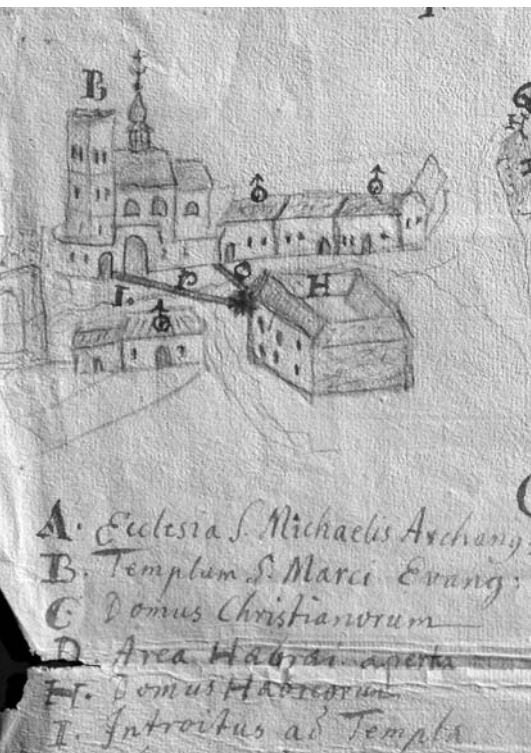 B
♁ ♁
O
P H
I.
♁
A. Ecclesia S. Michaelis Archang.
B. Templum S. Marci Evang:
C Domus Christianorum
D Area aperta
H. Domus
I. Introitus ad Templa.